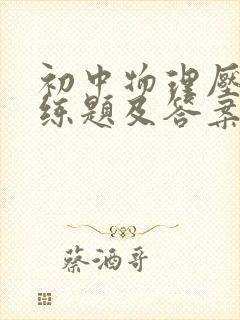 初中物理压
练题及答案
蔡酒哥